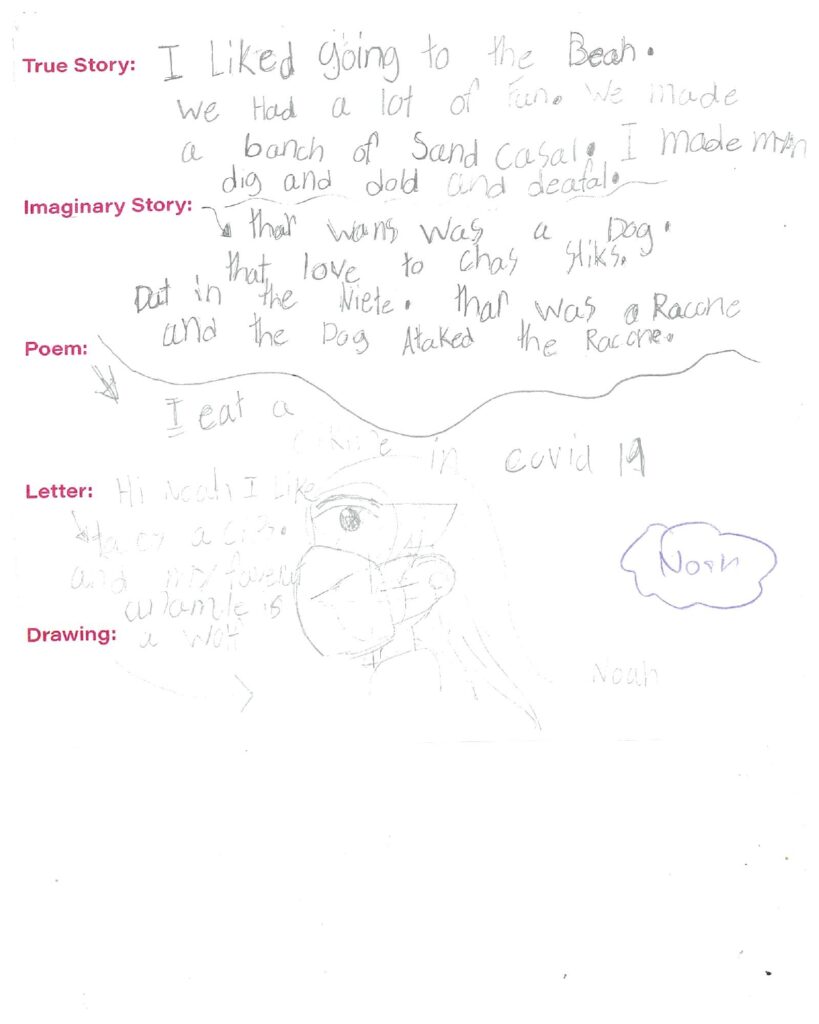 True Story: I Liked going to the Beah.
we Had a lot of Fun. We made
a banch of Sand casal. I made min
dig and dold and deatal.
Imaginary Story:
thar wans was a Dog.
that love to chas stiks.
But in the Niete. thar was a Racone
and the Dog Ataked the Racone.
Poem:
I eat a
in covid 19
Letter: Hi Noah I Like
and my faveret
is
Noah
Drawing: a wolf
Noah